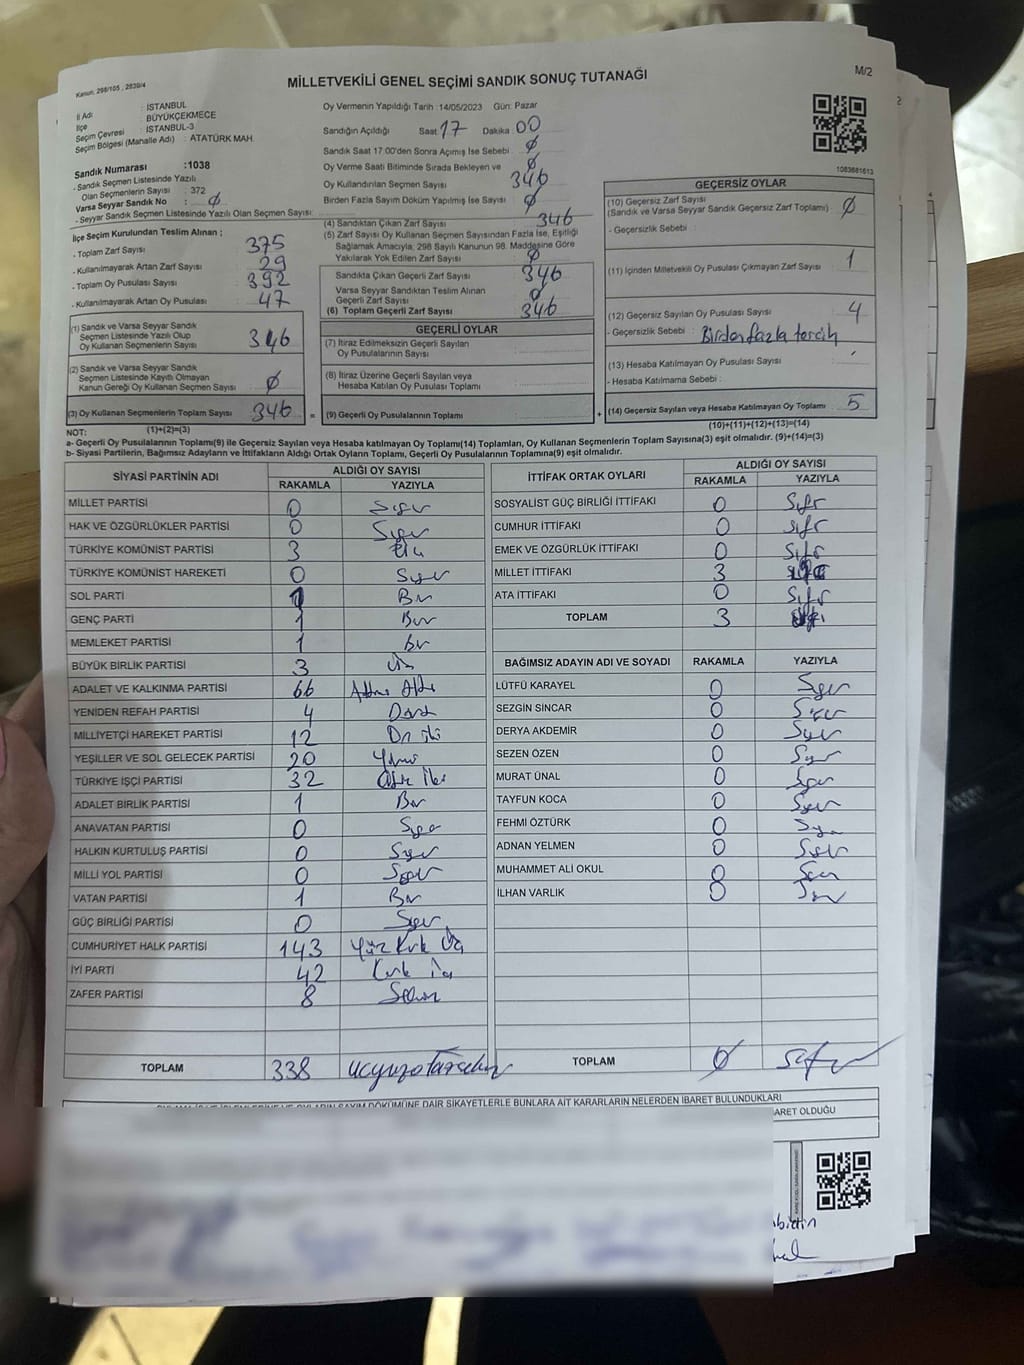 Kanun: 298/105 , 2839/4
MİLLETVEKİLİ GENEL SEÇİMİ SANDIK SONUÇ TUTANAĞI
M/2
İl Adı : İSTANBUL
İlçe : BÜYÜKÇEKMECE
Seçim Çevresi : İSTANBUL-3
Seçim Bölgesi (Mahalle Adı) : ATATÜRK MAH.
Sandık Numarası :1038
- Sandık Seçmen Listesinde Yazılı
Olan Seçmenlerin Sayısı : 372
Varsa Seyyar Sandık No : 0
- Seyyar Sandık Seçmen Listesinde Yazılı Olan Seçmen Sayısı:
İlçe Seçim Kurulundan Teslim Alınan ;
- Toplam Zarf Sayısı : 375
- Kullanılmayarak Artan Zarf Sayısı : 29
- Toplam Oy Pusulası Sayısı : 392
- Kullanılmayarak Artan Oy Pusulası : 47
(1) Sandık ve Varsa Seyyar Sandık
Seçmen Listesinde Yazılı Olup
Oy Kullanan Seçmenlerin Sayısı : 346
(2) Sandık ve Varsa Seyyar Sandık
Seçmen Listesinde Kayıtlı Olmayan
Kanun Gereği Oy Kullanan Seçmen Sayısı : 0
(3) Oy Kullanan Seçmenlerin Toplam Sayısı : 346
(1)+(2)=(3)
Oy Vermenin Yapıldığı Tarih :14/05/2023 Gün: Pazar
Sandığın Açıldığı Saat 17 Dakika 00
Sandık Saat 17.00'den Sonra Açımış İse Sebebi : 0
Oy Verme Saati Bitiminde Sırada Bekleyen ve 0
Oy Kullandırılan Seçmen Sayısı 346
Birden Fazla Sayım Döküm Yapılmış İse Sayısı : 0
(4) Sandıktan Çıkan Zarf Sayısı : 346
(5) Zarf Sayısı Oy Kullanan Seçmen Sayısından Fazla İse, Eşitliği
Sağlamak Amacıyla; 298 Sayılı Kanunun 98. Maddesine Göre
Yakılarak Yok Edilen Zarf Sayısı : 0
Sandıkta Çıkan Geçerli Zarf Sayısı : 346
Varsa Seyyar Sandıktan Teslim Alınan
Geçerli Zarf Sayısı : 0
(6) Toplam Geçerli Zarf Sayısı : 346
GEÇERLİ OYLAR
(7) İtiraz Edilmeksizin Geçerli Sayılan
Oy Pusulalarının Sayısı :
(8) İtiraz Üzerine Geçerli Sayılan veya
Hesaba Katılan Oy Pusulası Toplamı :
= (9) Geçerli Oy Pusulalarının Toplamı +
1083681613
GEÇERSİZ OYLAR
(10) Geçersiz Zarf Sayısı
(Sandık ve Varsa Seyyar Sandık Geçersiz Zarf Toplamı) : 0
- Geçersizlik Sebebi :
(11) İçinden Milletvekili Oy Pusulası Çıkmayan Zarf Sayısı : 1
(12) Geçersiz Sayılan Oy Pusulası Sayısı : 4
- Geçersizlik Sebebi : Birden fazla tercih
(13) Hesaba Katılmayan Oy Pusulası Sayısı :
- Hesaba Katılmama Sebebi :
(14) Geçersiz Sayılan veya Hesaba Katılmayan Oy Toplamı : 5
(10)+(11)+(12)+(13)=(14)
NOT:
a- Geçerli Oy Pusulalarının Toplamı(9) ile Geçersiz Sayılan veya Hesaba katılmayan Oy Toplamı(14) Toplamları, Oy Kullanan Seçmenlerin Toplam Sayısına(3) eşit olmalıdır. (9)+(14)=(3)
b- Siyasi Partilerin, Bağımsız Adayların ve İttifakların Aldığı Ortak Oyların Toplamı, Geçerli Oy Pusulalarının Toplamına(9) eşit olmalıdır.
SİYASİ PARTİNİN ADI ALDIĞI OY SAYISI
RAKAMLA YAZIYLA
MİLLET PARTİSİ 0 Sıfır
HAK VE ÖZGÜRLÜKLER PARTİSİ 0 Sıfır
TÜRKİYE KOMÜNİST PARTİSİ 3 Üç
TÜRKİYE KOMÜNİST HAREKETİ 0 Sıfır
SOL PARTİ 1 Bir
GENÇ PARTİ 1 Bir
MEMLEKET PARTİSİ 1 bir
BÜYÜK BİRLİK PARTİSİ 3 Üç
ADALET VE KALKINMA PARTİSİ 66 Altmış Altı
YENİDEN REFAH PARTİSİ 4 Dört
MİLLİYETÇİ HAREKET PARTİSİ 12 On iki
YEŞİLLER VE SOL GELECEK PARTİSİ 20 Yirmi
TÜRKİYE İŞÇİ PARTİSİ 32 Otuz İki
ADALET BİRLİK PARTİSİ 1 Bir
ANAVATAN PARTİSİ 0 Sıfır
HALKIN KURTULUŞ PARTİSİ 0 Sıfır
MİLLİ YOL PARTİSİ 0 Sıfır
VATAN PARTİSİ 1 Bir
GÜÇ BİRLİĞİ PARTİSİ 0 Sıfır
CUMHURİYET HALK PARTİSİ 143 Yüz Kırk Üç
İYİ PARTİ 42 Kırk İki
ZAFER PARTİSİ 8 Sekiz
TOPLAM 338 üçyüzotuzsekiz
İTTİFAK ORTAK OYLARI ALDIĞI OY SAYISI
RAKAMLA YAZIYLA
SOSYALİST GÜÇ BİRLİĞİ İTTİFAKI 0 Sıfır
CUMHUR İTTİFAKI 0 sıfır
EMEK VE ÖZGÜRLÜK İTTİFAKI 0 Sıfır
MİLLET İTTİFAKI 3
ATA İTTİFAKI 0 Sıfır
TOPLAM 3
BAĞIMSIZ ADAYIN ADI VE SOYADI RAKAMLA YAZIYLA
LÜTFÜ KARAYEL 0 Sıfır
SEZGİN SİNCAR 0 Sıfır
DERYA AKDEMİR 0 Sıfır
SEZEN ÖZEN 0 Sıfır
MURAT ÜNAL 0 Sıfır
TAYFUN KOCA 0 Sıfır
FEHMİ ÖZTÜRK 0 Sıfır
ADNAN YELMEN 0 Sıfır
MUHAMMET ALİ OKUL 0 Sıfır
İLHAN VARLIK 0 Sıfır
TOPLAM 0 sıfır
DÖKÜMÜNE DAİR ŞİKAYETLERLE BUNLARA AİT KARARLARIN NELERDEN İBARET BULUNDUKLARI
ARET OLDUĞU